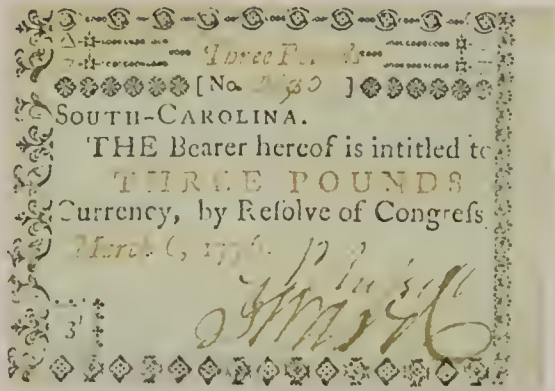 Three Pounds
[ No. ]
SOUTH-CAROLINA.
THE Bearer hereof is intitled to
THREE POUNDS
Currency, by Reſolve of Congreſs
March 6, 1776.